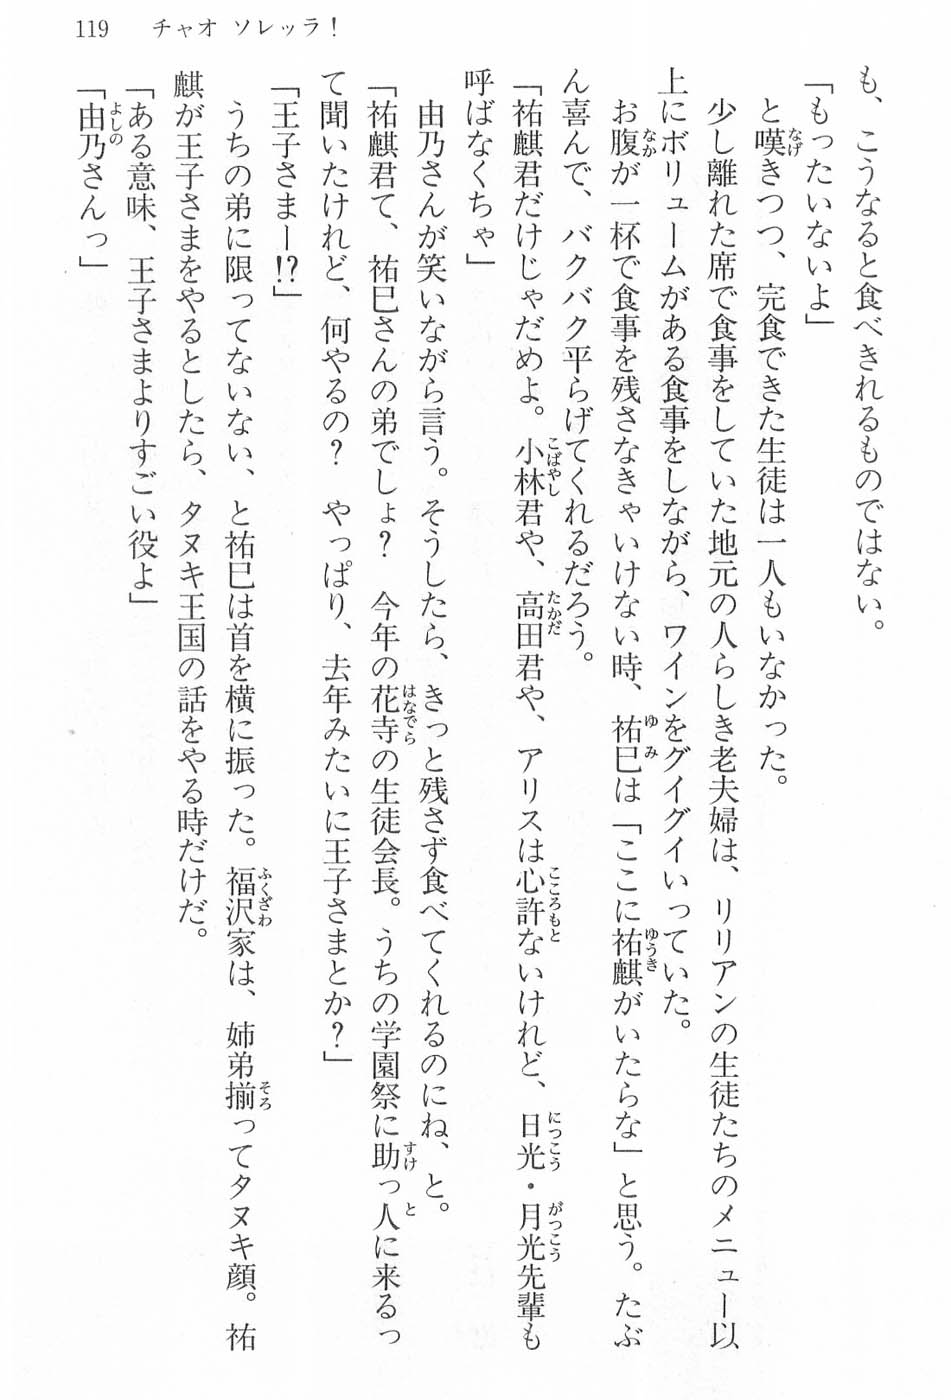 119　チャオ ソレッラ！
も、こうなると食べきれるものではない。
「もったいないよ」
と嘆きつつ、完食できた生徒は一人もいなかった。
少し離れた席で食事をしていた地元の人らしき老夫婦は、リリアンの生徒たちのメニュー以
上にボリュームがある食事をしながら、ワインをグイグイいっていた。
お腹が一杯で食事を残さなきゃいけない時、祐巳は「ここに祐麒がいたらな」と思う。たぶ
ん喜んで、バクバク平らげてくれるだろう。
「祐麒君だけじゃだめよ。小林君や、高田君や、アリスは心許ないけれど、日光・月光先輩も
呼ばなくちゃ」
由乃さんが笑いながら言う。そうしたら、きっと残さず食べてくれるのにね、と。
「祐麒君て、祐巳さんの弟でしょ？　今年の花寺の生徒会長。うちの学園祭に助っ人に来るっ
て聞いたけれど、何やるの？　やっぱり、去年みたいに王子さまとか？」
「王子さまー!?」
うちの弟に限ってないない、と祐巳は首を横に振った。福沢家は、姉弟揃ってタヌキ顔。祐
麒が王子さまをやるとしたら、タヌキ王国の話をやる時だけだ。
「ある意味、王子さまよりすごい役よ」
「由乃さんっ」